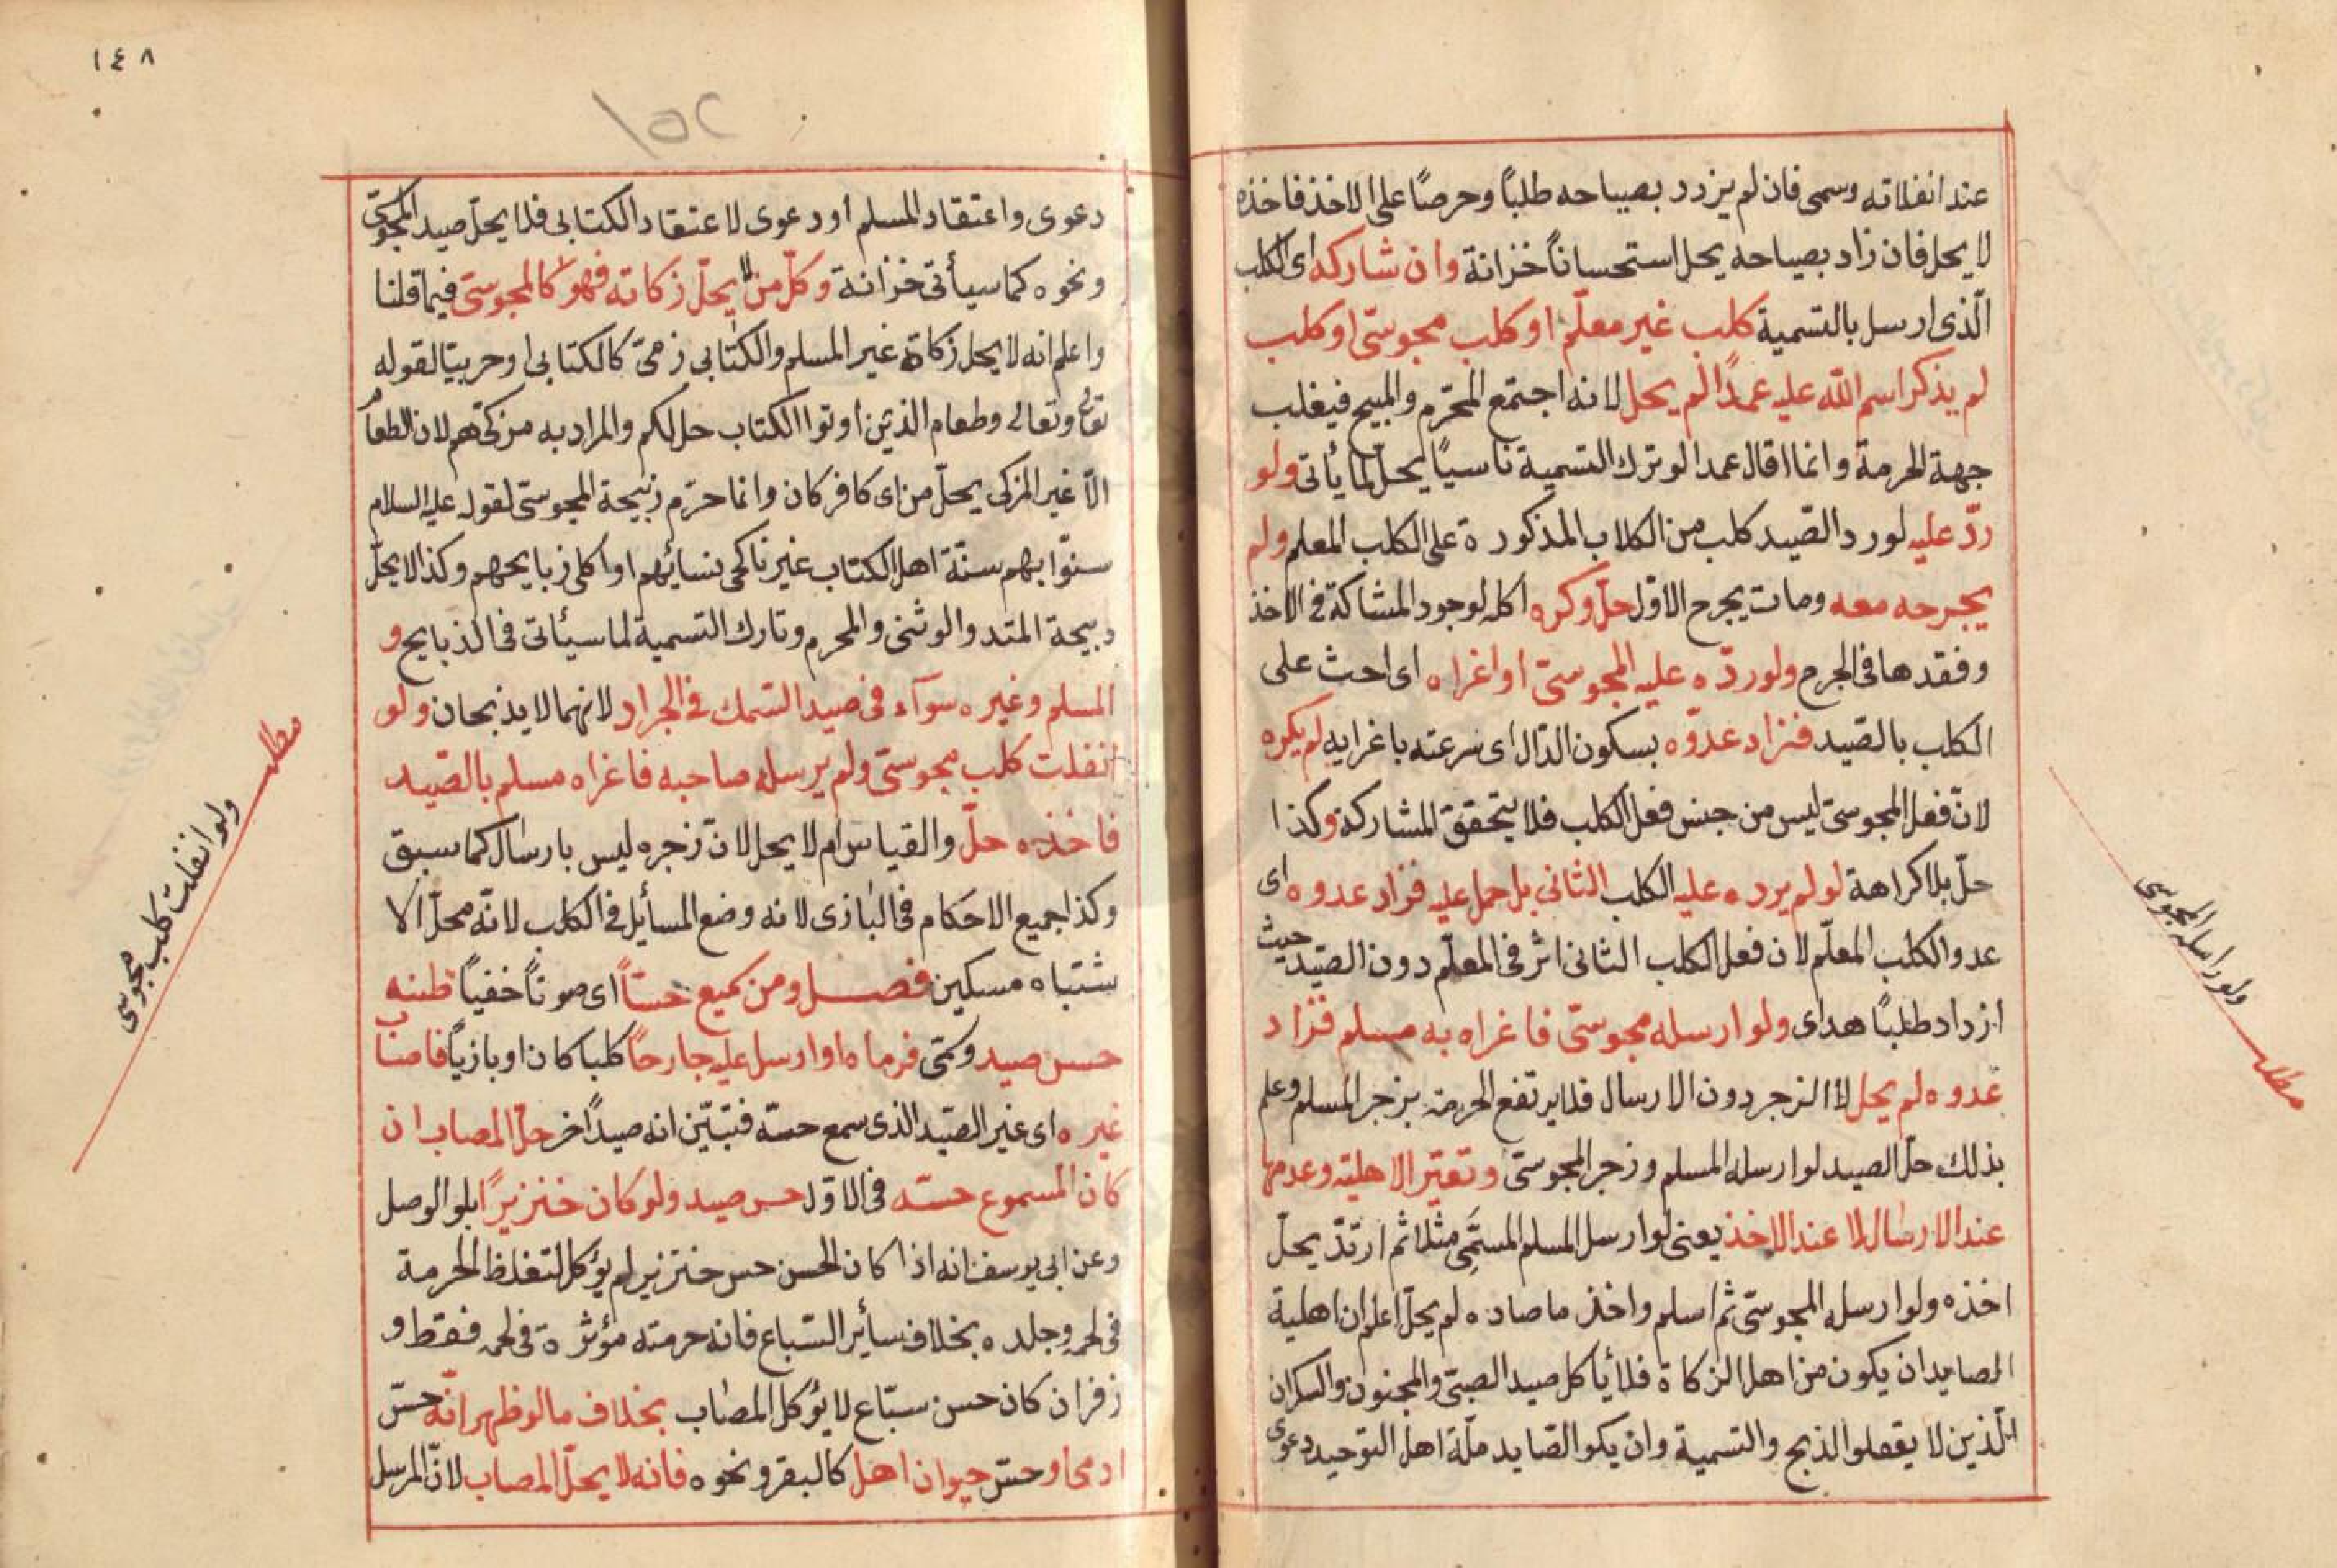 عند انفلاته وسمى فان لم يزدد بصياحه طلبًا وحرصًا على الاخذ فاخذه
لا يحل فان زاد بصياحه يحل استحسانًا خزانة وان شاركه اى الكلب
الّذى ارسل بالتسمية كلب غير معلّم او كلب مجوسىّ او كلب
لم يذكر اسم الله عليه عمدًا لم يحل لانه اجتمع المحرّم والمبيح فيغلب
جهة الحرمة وانما قال عمدا لو ترك التسمية ناسيًا يحلّ لما يأتى ولو
ردّ عليه لو رد الصّيد كلب من الكلاب المذكورة على الكلب المعلم ولم
يجرحه معه ومات بجرح الاوّل حلّ وكره اكله لوجود المشاكة فى الاخذ
وفقدها فى الجرم ولو ردّه عليه المجوسىّ او اغراه اى احث على
الكلب بالصّيد فزاد عدوّه بسكون الدّال اى سرعته باغرايه لم يكره
لانّ فعل المجوسىّ ليس من جنس فعل الكلب فلا يتحقق المشاركة وكذا
حلّ بلا كراهة لو لم يرده عليه الكلب الثانى بل حمل عليه فزاد عدوه اى
عدو الكلب المعلّم لان فعل الكلب الثانى اثر فى المعلّم دون الصّيد حيث
ازداد طلبًا هداى ولو ارسله مجوسىّ فاغراه به مسلم فزاد
عدوه لم يحل لا الزجر دون الارسال فلا يرتفع الحرمة بزجر المسلم وعلم
بذلك حلّ الصيد لو ارسله المسلم وزجر المجوسىّ وتعتبر الاهلية وعدمها
عند الارسال لا عند الاخذ يعنى لو ارسل المسلم المسمِّى مثلا ثم ارتدّ يحلّ
اخذه ولو ارسله المجوسىّ ثم اسلم واخذ ما صاده لم يحلّ اعلم ان اهلية
الصايد ان يكون من اهل الزكاة فلا يأكل صيد الصبىّ والمجنون والسكران
الّذين لا يعقلوا الذبح والتسمية وان يكو الصّايد ملّة اهل التوحيد دعوى
ولو ارسله المجوسى
مطلب
١٤٨
١٥٢
دعوى واعتقاد المسلم او دعوى لا عتقاد الكتابى فلا يحلّ صيد المجوسىّ
ونحوه كما سيأتى خزانة وكلّ من لا يحلّ زكاته فهو كالمجوسىّ فيما قلنا
واعلم انه لا يحل زكاة غير المسلم والكتابى زمىّ كالكتابى او حربيّا لقوله
تعالى وطعام الذين اوتوا الكتاب حل لكم والمراد به مزكّاهم لان الطعام
الاّ غير المزكى يحلّ من اى كافر كان وانما حرّم زبيحة المجوسىّ لقوله عليه السلام
سنوّا بهم سنّة اهل الكتاب غير ناكحى نسائهم او اكلى زبايحهم وكذا لا يحلّ
دبيحة المتد والوثنى والمحرم وتارك التسمية لما سيأتى فى الذبايح و
المسلم وغيره سوآء فى صيد السّمك فى الجراد لانهما لا يذبحان ولو
انفلت كلب مجوسىّ ولم يرسله صاحبه فاغراه مسلم بالصّيد
فاخذه حلّ والقياس ام لا يحل لانّ زجره ليس بارسال كما سبق
وكذا جميع الاحكام فى البازى لانه وضع المسأيل فى الكلب لانّه محلّ الا
شتباه مسكين فصل ومن كميع حسّاً اى صوتاً خفيّاً ظنه
حسن صيد وكمّى فرماه او ارسل عليه جارحًا كلبا كان او بازيًا فاصاب
غيره اى غير الصّيد الذى سمع حسّه فتبيّن انه صيدًا خر حلّ المصاب ان
كان المسموع حسّه فى الاوّل حس صيد ولو كان خنزيرًا بلو الوصل
وعن ابى يوسف انه اذا كان الحسن حس خنزير لم يؤكل لتغلظ الحرمة
فى لحمه وجلده بخلاف سأير السّباع فانه حرمته مؤثرة فى لحمه فقط و
زفران كان حسن سبّاع لا يؤكل المصاب بخلاف مالو ظهر انّه حسّ
ادمى او حسّ حيوان اهل كالبقر ونحوه فانه لا يحلّ المصاب لانّ المرسل
مطلب
ولو انفلت كلب مجوسى